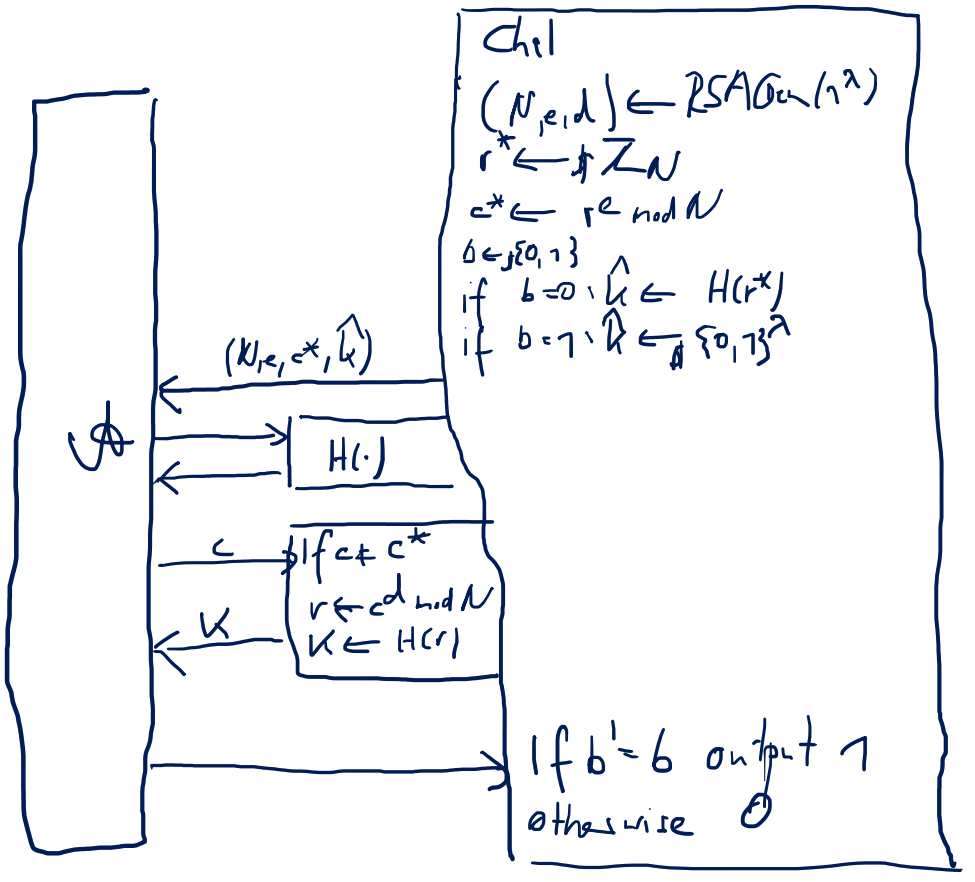 Chal
(N,e,d) ← RSAGen(1^λ)
r* ←$ Z_N
c* ← r^e mod N
b ←$ {0,1}
if b=0: k̂ ← H(r*)
if b=1: k̂ ←$ {0,1}^λ
(N,e,c*,k̂)
A
H(·)
c
If c ≠ c*
r ← c^d mod N
K
K ← H(r)
If b'=b output 1
otherwise 0